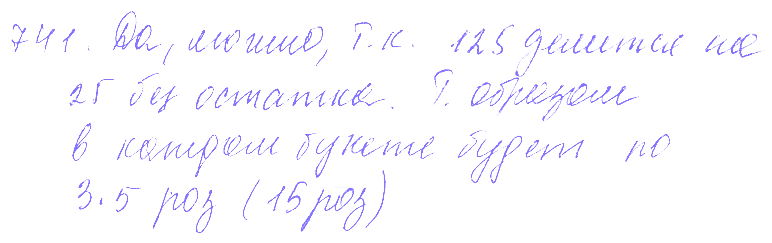 741. Да, можно, т.к. 125 делится на
25 без остатка. Т. образом
в каждом букете будет по
3.5 роз (15 роз)